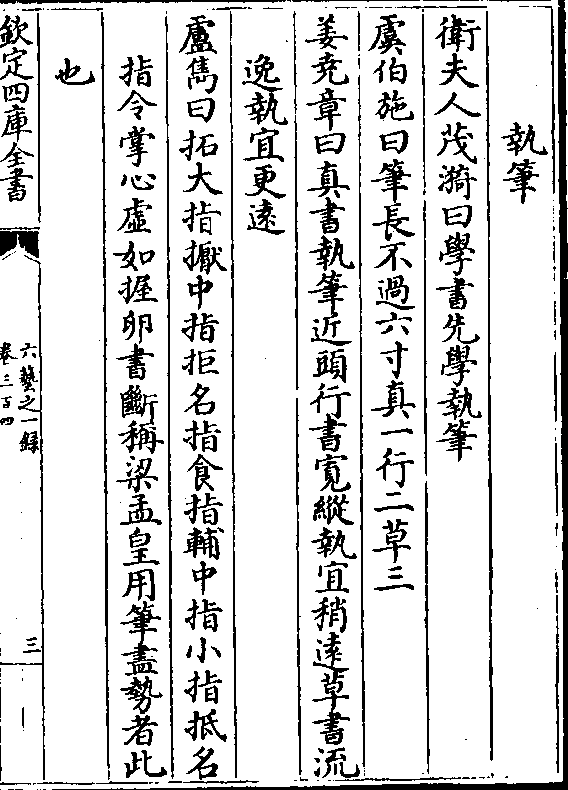 執筆
衛夫人茂漪曰學書先學執筆
虞伯施曰筆長不過六寸真一行二草三
姜堯章曰真書執筆近頭行書寛縱執宜稍逺草書流
逸執宜更逺
盧雋曰拓大指擫中指拒名指食指輔中指小指抵名
指令掌心虛如握卵書斷稱梁孟皇用筆盡勢者此
也
欽定四庫全書
六藝之一録
卷三百四
三